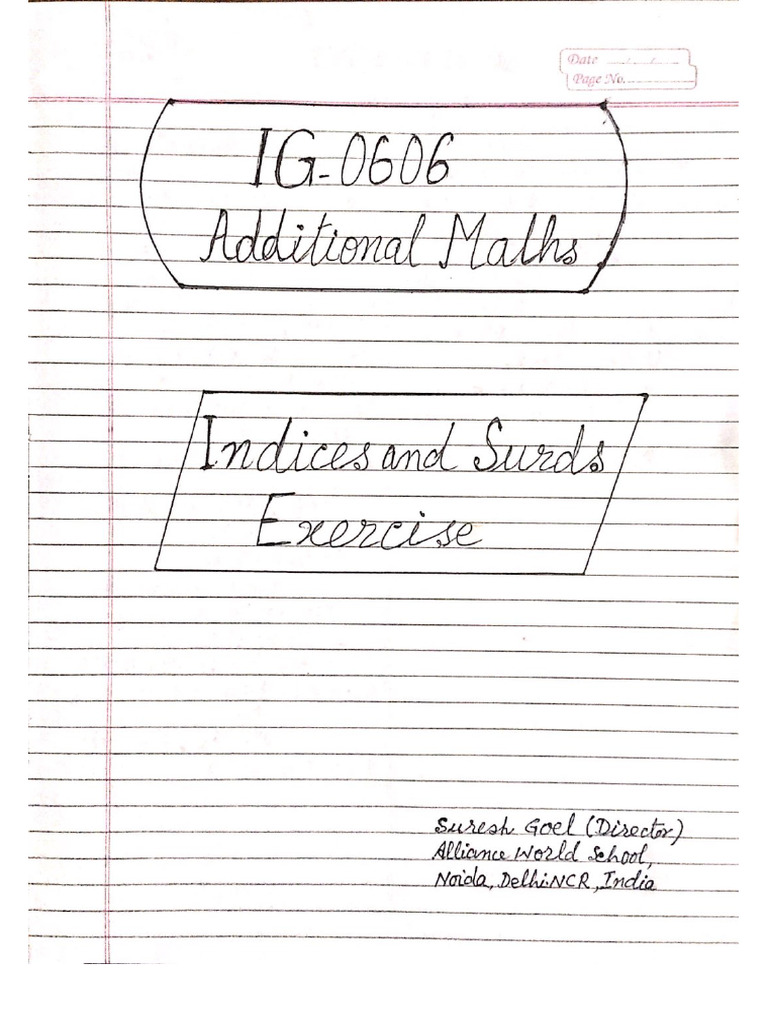 Date
Page No.
IG-0606
Additional Maths
Indices and Surds
Exercise
Suresh Goel (Director)
Alliance World School,
Noida, Delhi-NCR, India